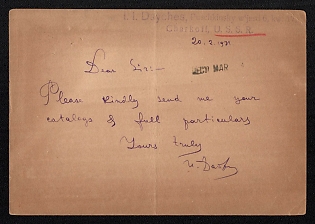 Charkoff, U. S. S. R.
20. 2. 1931
Dear Sir:—
MAR
Please kindly send me your
catalogs & full particulars
Yours truly